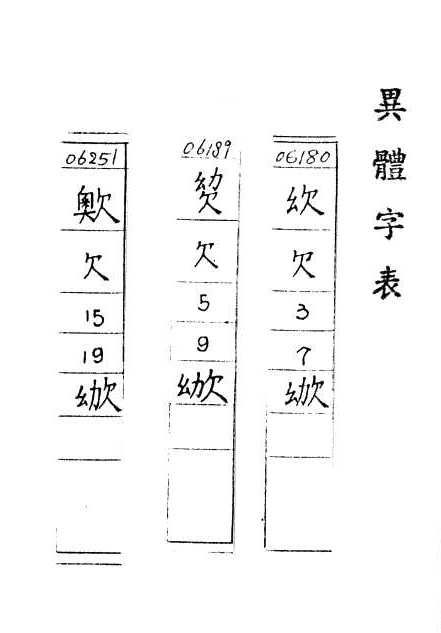 異體字表
06180
欠
3
7
𣢜
06189
欠
5
9
𣢜
06251
欠
15
19
𣢜